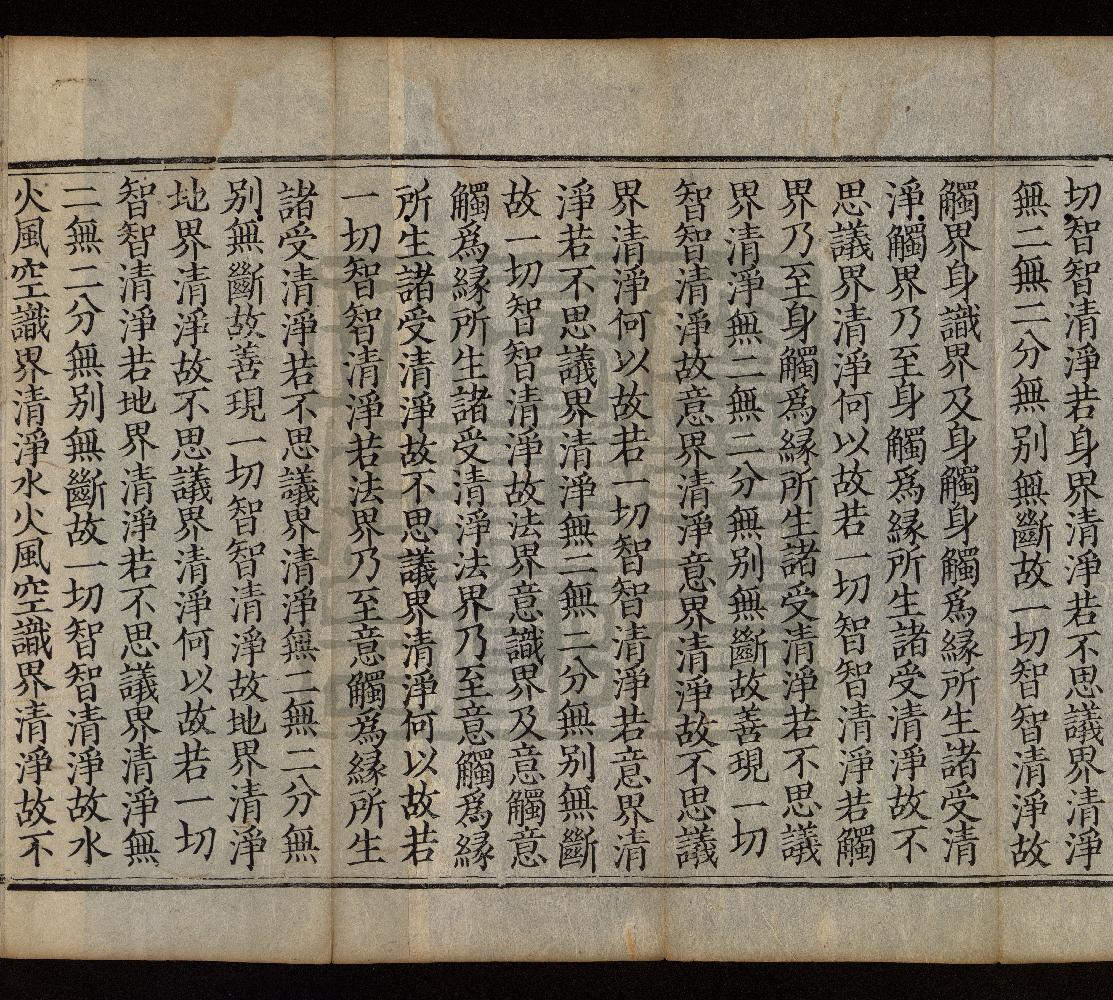 切智智清淨若身界清淨若不思議界清淨
無二無二分無别無斷故一切智智清淨故
觸界身識界及身觸身觸爲縁所生諸受清
淨觸界乃至身觸爲縁所生諸受清淨故不
思議界清淨何以故若一切智智清淨若觸
界乃至身觸爲縁所生諸受清淨若不思議
界清淨無二無二分無别無斷故善現一切
智智清淨故意界清淨意界清淨故不思議
界清淨何以故若一切智智清淨若意界清
淨若不思議界清淨無二無二分無别無斷
故一切智智清淨故法界意識界及意觸意
觸爲縁所生諸受清淨法界乃至意觸爲縁
所生諸受清淨故不思議界清淨何以故若
一切智智清淨若法界乃至意觸爲縁所生
諸受清淨若不思議界清淨無二無二分無
别無斷故善現一切智智清淨故地界清淨
地界清淨故不思議界清淨何以故若一切
智智清淨若地界清淨若不思議界清淨無
二無二分無别無斷故一切智智清淨故水
火風空識界清淨水火風空識界清淨故不